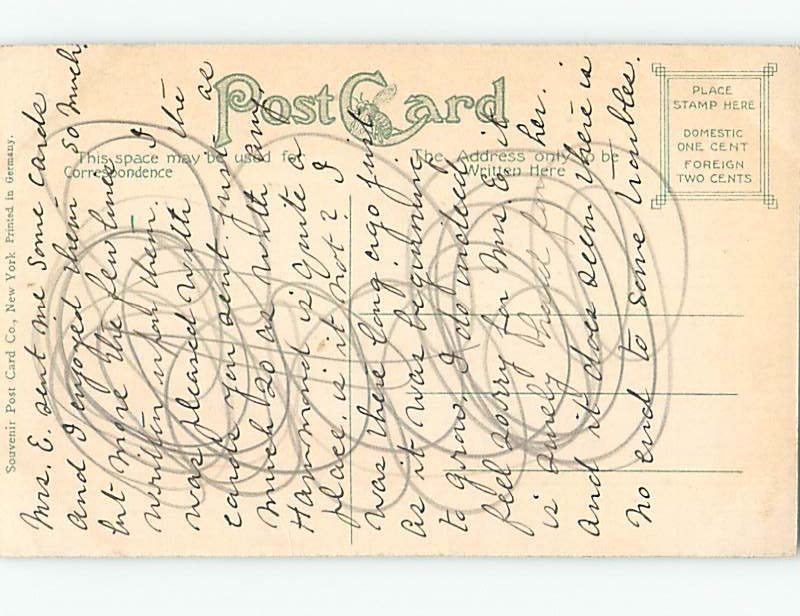 Post Card
This space may be used for
Correspondence
The Address only to be
Written Here
PLACE
STAMP HERE
DOMESTIC
ONE CENT
FOREIGN
TWO CENTS
Souvenir Post Card Co., New York Printed in Germany.
Mrs. E. sent me some cards
and I enjoyed them so much,
but more the few lines
written upon them. I
was pleased with the
cards you sent. Just as
much so as with any
Hammond is quite a
place. is it not? I
was there long ago just
as it was beginning
to grow. I do indeed
feel sorry for Mrs. E. it
is surely hard for her.
And it does seem there is
no end to some troubles.